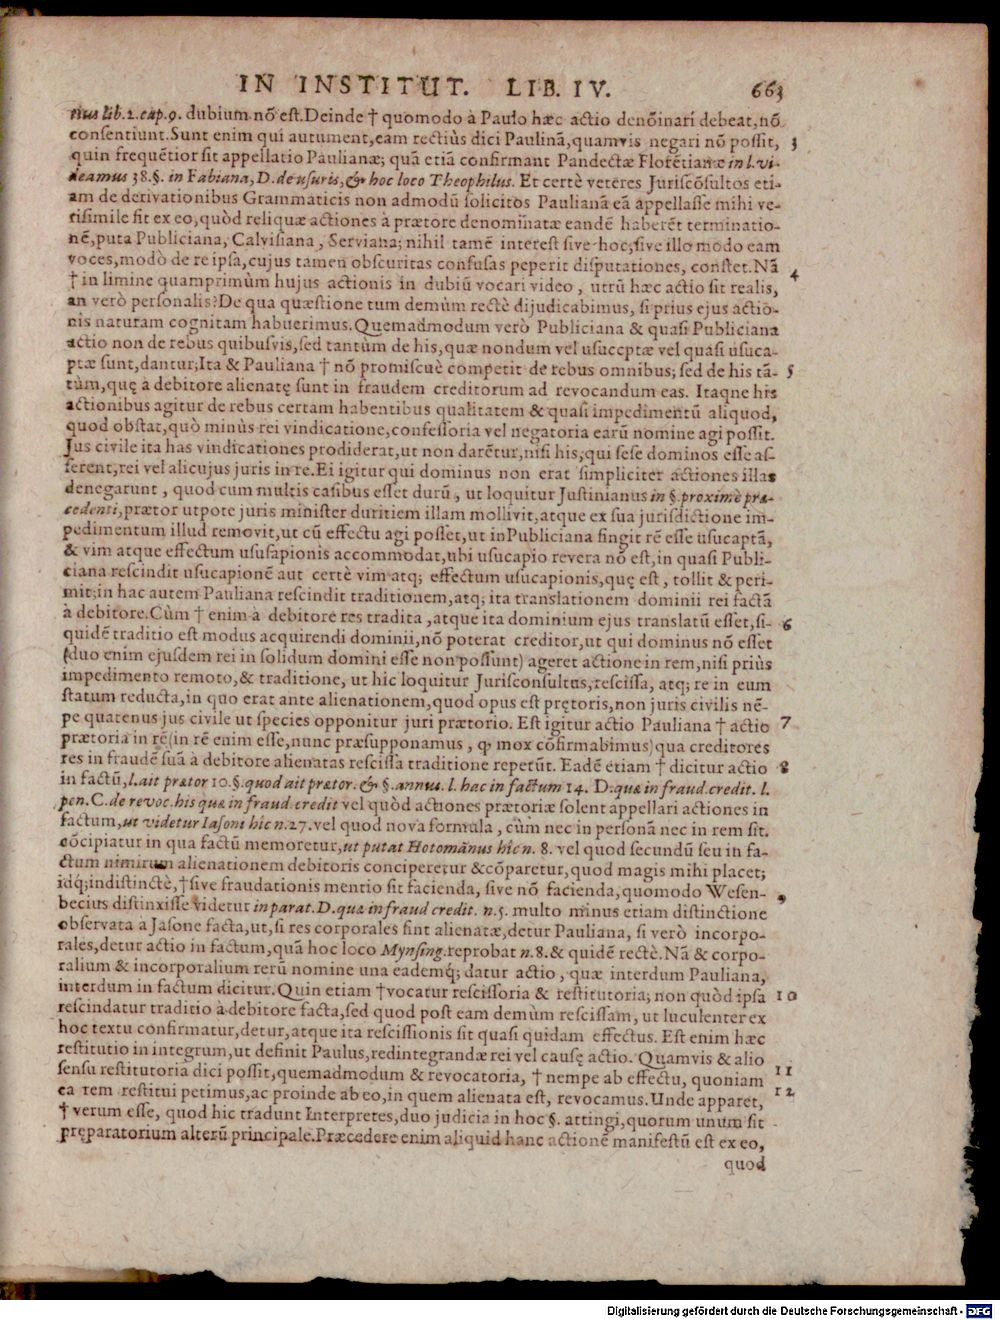 IN INSTITUT. LIB. IV. 663
tius lib. 2. cap. 9. dubium nõ est. Deinde † quomodo à Paulo hæc actio denõinari debeat, nõ
consentiunt. Sunt enim qui autument, eam rectiùs dici Paulinã, quamvis negari nõ possit, 3
quin frequẽtior sit appellatio Paulianæ; quã etiã confirmant Pandectæ Florẽtianæ in l. vi-
deamus 38. §. in Fabiana, D. de usuris, & hoc loco Theophilus. Et certè veteres Juriscõsultos eti-
am de derivationibus Grammaticis non admodũ solicitos Paulianã eã appellasse mihi ve-
risimile fit ex eo, quòd reliquæ actiones à prætore denominatæ eandẽ haberẽt terminatio-
nẽ, puta Publiciana, Calvisiana, Serviana; nihil tamẽ interest sive hoc, sive illo modo eam
voces, modò de re ipsa, cujus tamen obscuritas confusas peperit disputationes, constet. Nã
† in limine quamprimùm hujus actionis in dubiũ vocari video, utrũ hæc actio sit realis, 4
an verò personalis? De qua quæstione tum demùm rectè dijudicabimus, si prius ejus actio-
nis naturam cognitam habuerimus. Quemadmodum verò Publiciana & quasi Publiciana
actio non de rebus quibusvis, sed tantùm de his, quæ nondum vel usuceptæ vel quasi usuca-
ptæ sunt, dantur; Ita & Pauliana † nõ promiscuè competit de rebus omnibus; sed de his tã- 5
tùm, quę à debitore alienatę sunt in fraudem creditorum ad revocandum eas. Itaqne his
actionibus agitur de rebus certam habentibus qualitatem & quasi impedimentũ aliquod,
quod obstat, quò minùs rei vindicatione, confessoria vel negatoria earũ nomine agi possit.
Jus civile ita has vindicationes prodiderat, ut non darẽtur, nisi his, qui sese dominos esse as-
serent, rei vel alicujus juris in re. Ei igitur qui dominus non erat simpliciter actiones illas
denegarunt, quod cum multis casibus esset durũ, ut loquitur Justinianus in §. proximè præ-
cedenti, prætor utpote juris minister duritiem illam mollivit, atque ex sua jurisdictione im-
pedimentum illud removit, ut cũ effectu agi posset, ut in Publiciana fingit rẽ esse usucaptã,
& vim atque effectum ususapionis accommodat, ubi usucapio revera nõ est, in quasi Publi-
ciana rescindit usucapionẽ aut certè vim atq; effectum usucapionis, quę est, tollit & peri-
mit; in hac autem Pauliana rescindit traditionem, atq; ita translationem dominii rei factã
à debitore. Cùm † enim à debitore res tradita, atque ita dominium ejus translatũ esset, si- 6
quidẽ traditio est modus acquirendi dominii, nõ poterat creditor, ut qui dominus nõ esset
(duo enim ejusdem rei in solidum domini esse non possunt) ageret actione in rem, nisi priùs
impedimento remoto, & traditione, ut hic loquitur Jurisconsultus, rescissa, atq; re in eum
statum reducta, in quo erat ante alienationem, quod opus est prętoris, non juris civilis nẽ-
pe quatenus jus civile ut species opponitur juri prætorio. Est igitur actio Pauliana † actio 7
prætoria in rẽ (in rẽ enim esse, nunc præsupponamus, ꝙ mox cõfirmabimus) qua creditores
res in fraudẽ suã à debitore alienatas rescissa traditione repetũt. Eadẽ etiam † dicitur actio 8
in factũ, l. ait prætor 10. §. quod ait prætor. & §. annus. l. hac in factum 14. D. quæ in fraud. credit. l.
pen. C. de revoc. his quæ in fraud. credit vel quòd actiones prætoriæ solent appellari actiones in
factum, ut videtur Iasoni hic n. 27. vel quod nova formula, cùm nec in personã nec in rem sit.
cõcipiatur in qua factũ memoretur, ut putat Hotomãnus hic n. 8. vel quod secundũ seu in fa-
ctum nimirum alienationem debitoris conciperetur & cõparetur, quod magis mihi placet;
idq; indistinctè, † sive fraudationis mentio sit facienda, sive nõ facienda, quomodo Wesen- 9
becius distinxisse videtur in parat. D. quæ in fraud. credit. n. 5. multo minus etiam distinctione
observata à Jasone facta, ut, si res corporales sint alienatæ, detur Pauliana, si verò incorpo-
rales, detur actio in factum, quã hoc loco Mynsing. reprobat n. 8. & quidẽ rectè. Nã & corpo-
ralium & incorporalium rerũ nomine una eademq́; datur actio, quæ interdum Pauliana,
interdum in factum dicitur. Quin etiam † vocatur rescissoria & restitutoria; non quòd ipsa 10
rescindatur traditio à debitore facta, sed quod post eam demùm rescissam, ut luculenter ex
hoc textu confirmatur, detur, atque ita rescissionis sit quasi quidam effectus. Est enim hæc
restitutio in integrum, ut definit Paulus, redintegrandæ rei vel causę actio. Quamvis & alio
sensu restitutoria dici possit, quemadmodum & revocatoria, † nempe ab effectu, quoniam 11
ea rem restitui petimus, ac proinde ab eo, in quem alienata est, revocamus. Unde apparet, 12
† verum esse, quod hic tradunt Interpretes, duo judicia in hoc §. attingi, quorum unum sit
pręparatorium alterũ principale. Præcedere enim aliquid hanc actionẽ manifestũ est ex eo,
quod
Digitalisierung gefördert durch die Deutsche Forschungsgemeinschaft - DFG